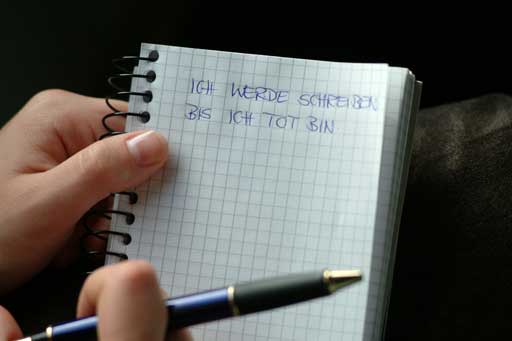 ICH WERDE SCHREIBEN
BIS ICH TOT BIN